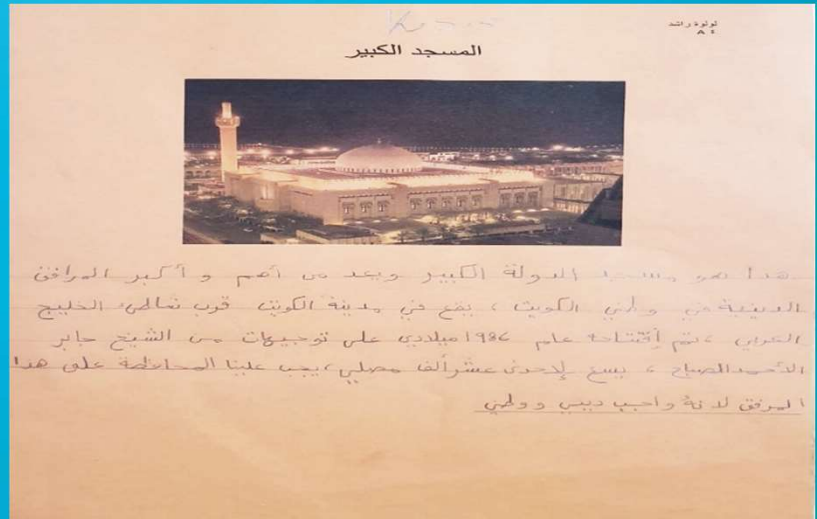 لولوة راشد
٨٤
المسجد الكبير
هذا هو مسجد الدولة الكبير ويعد من أهم و أكبر المرافق
الدينية في وطني الكويت ، يقع في مدينة الكويت قرب شاطىء الخليج
العربي ، تم إفتتاحه عام 1986 ميلادي على توجيهات من الشيخ جابر
الأحمد الصباح ، يسع لإحدى عشر ألف مصلي ، يجب علينا المحافظة على هذا
المرفق لانهُ واجب ديني ووطني